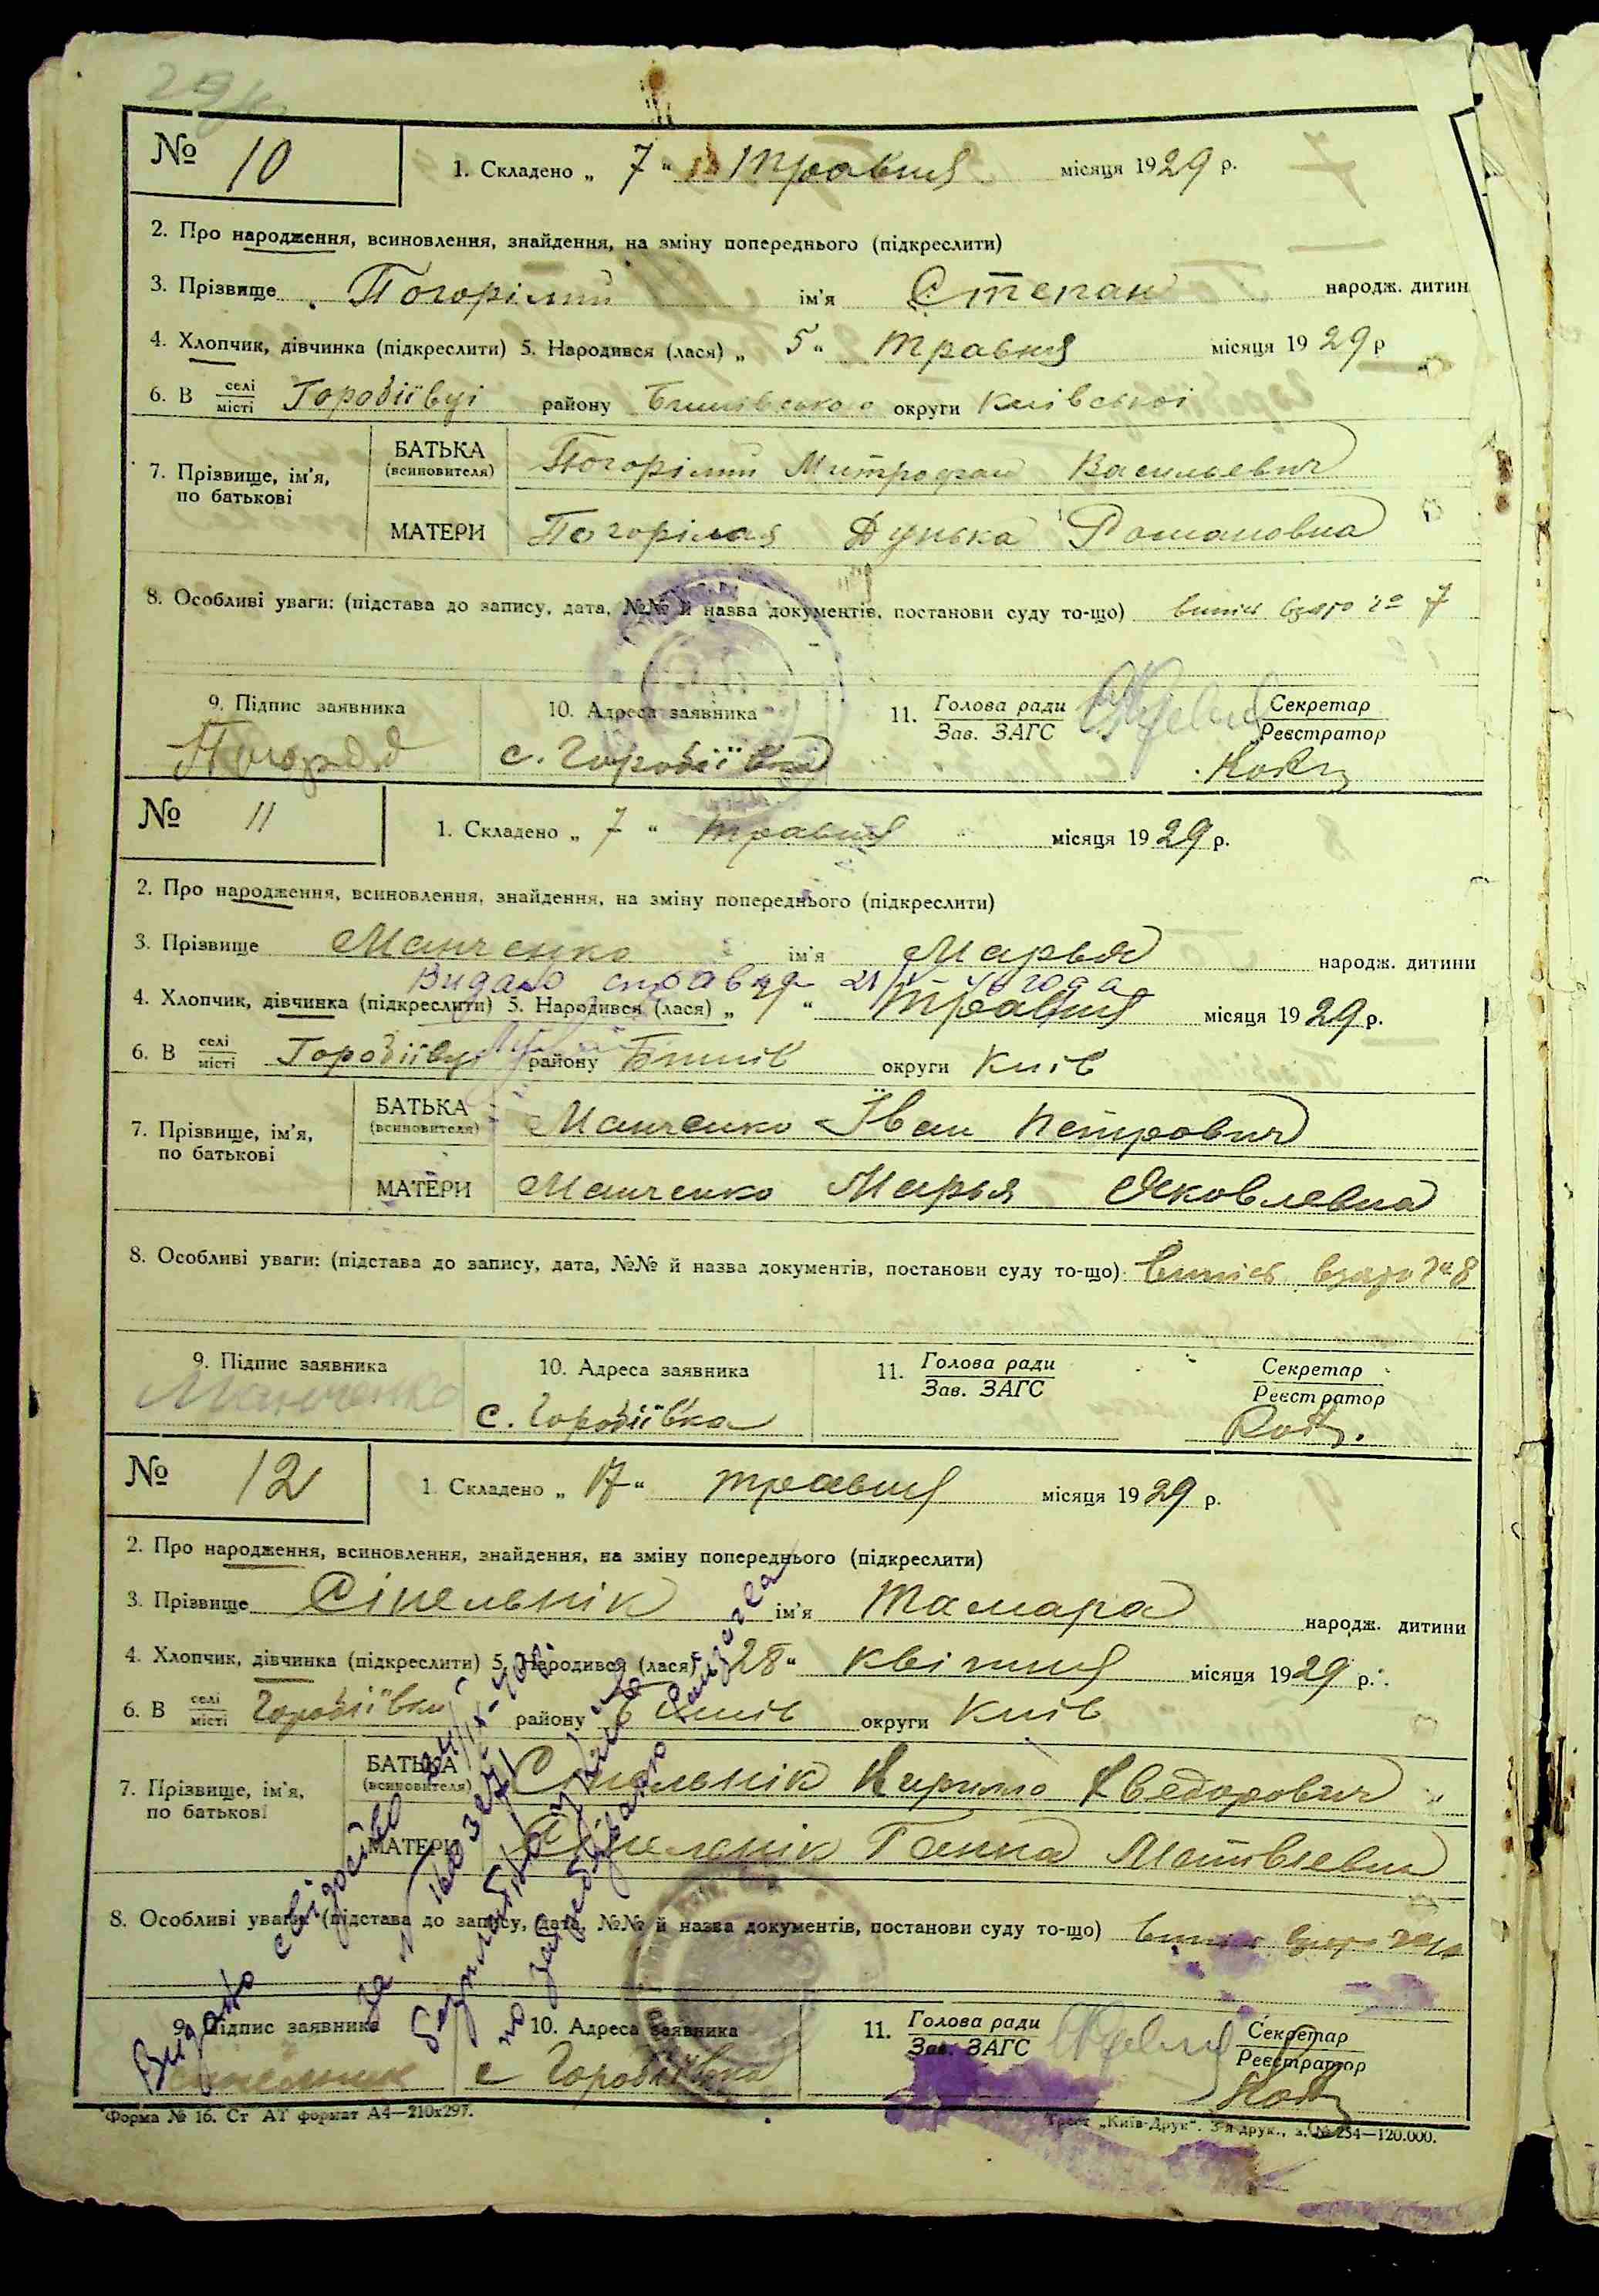 № 10
1. Складено „ 7 “ травня місяця 1929 р.
2. Про народження, всиновлення, знайдення, на зміну попереднього (підкреслити)
3. Прізвище Погорілий ім'я Степан народж. дитин
4. Хлопчик, дівчинка (підкреслити) 5. Народився (лася) „ 5 “ травня місяця 1929 р
6. В селі/місті Городіївці району Бишівського округи Київської
7. Прізвище, ім'я, по батькові
БАТЬКА (всиновителя) Погорілий Митрофан Васильевич
МАТЕРИ Погорілая Дунька Романовна
8. Особливі уваги: (підстава до запису, дата, №№ й назва документів, постанови суду то-що) випис взято № 7
9. Підпис заявника 10. Адреса заявника 11. Голова ради/Зав. ЗАГС Секретар/Реєстратор
с. Городіївка
№ 11
1. Складено „ 7 “ травня місяця 1929 р.
2. Про народження, всиновлення, знайдення, на зміну попереднього (підкреслити)
3. Прізвище Манченко ім'я Марья народж. дитини
Видано справка 21
4. Хлопчик, дівчинка (підкреслити) 5. Народився (лася) „ “ травня місяця 1929 р.
6. В селі/місті Городіївці району Бишів округи Київ
7. Прізвище, ім'я, по батькові
БАТЬКА (всиновителя) Манченко Іван Петрович
МАТЕРИ Манченко Марья Яковлевна
8. Особливі уваги: (підстава до запису, дата, №№ й назва документів, постанови суду то-що) випис взято № 8
9. Підпис заявника 10. Адреса заявника 11. Голова ради/Зав. ЗАГС Секретар/Реєстратор
Манченко с. Городіївка
№ 12
1. Складено „ 17 “ травня місяця 1929 р.
2. Про народження, всиновлення, знайдення, на зміну попереднього (підкреслити)
3. Прізвище Сінельнік ім'я Тамара народж. дитини
4. Хлопчик, дівчинка (підкреслити) 5. Народився (лася) „ 28 “ квітня місяця 1929 р.
6. В селі/місті Городіївки району Бишів округи Київ
7. Прізвище, ім'я, по батькові
БАТЬКА (всиновителя) Сінельнік Кирило Хведорович
МАТЕРИ Сінельнік Ганна Матвіевна
8. Особливі уваги: (підстава до запису, дата, №№ й назва документів, постанови суду то-що) випис взято
9. Підпис заявника 10. Адреса заявника 11. Голова ради/Зав. ЗАГС Секретар/Реєстратор
Сінельник с Городіївка
Видано свідоцтво
Форма № 16. Ст АТ формат А4—210х297.
Трест „Київ-Друк“. 3-я друк., з. № 254—120.000.